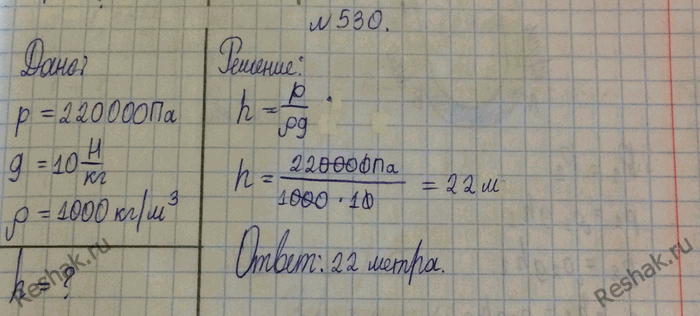 №530.
Дано:
p = 220000Па
g = 10 Н/кг
ρ = 1000 кг/м³
h = ?
Решение:
h = p/ρg.
h = 220000Па/1000 · 10 = 22 м
Ответ: 22 метра.
Reshak.ru
Reshak.ru